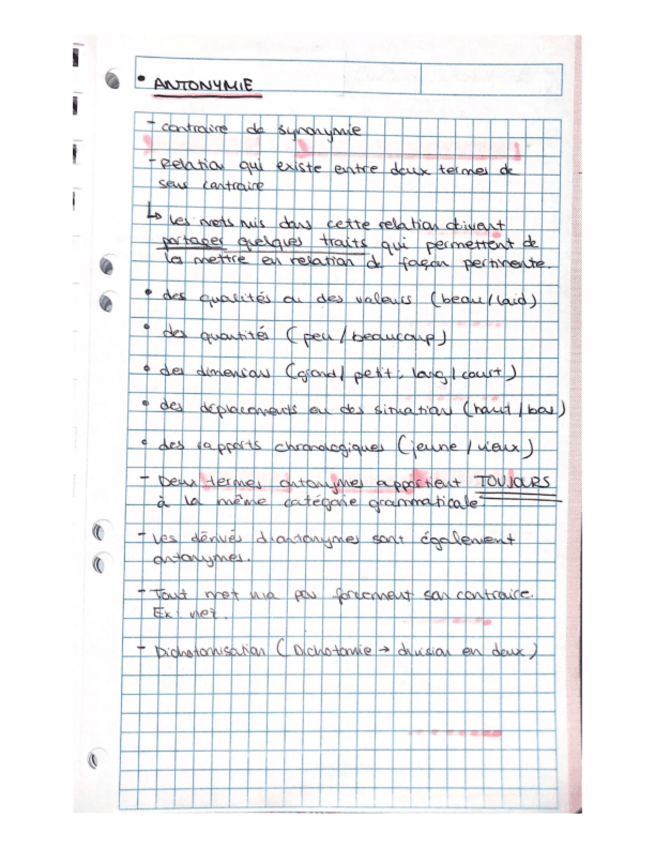 • ANTONYMIE
- contraire de synonymie
- Relation qui existe entre deux termes de
sens contraire
↳ Les mots mis dans cette relation doivent
partager quelques traits qui permettent de
les mettre en relation de façon pertinente.
• des qualités ou des valeurs (beau/laid)
• des quantités (peu/beaucoup)
• des dimension (grand/petit; long/court)
• des déplacements ou des situation (haut/bas)
• des rapports chronologiques (jeune/vieux)
- Deux termes antonymes appartient TOUJOURS
à la même catégorie grammaticale
- Les dérivés d'antonymes sont également
antonymes.
- Tout mot n'a pas forcement son contraire.
Ex: nez.
- Dichotomisation (Dichotomie → division en deux)